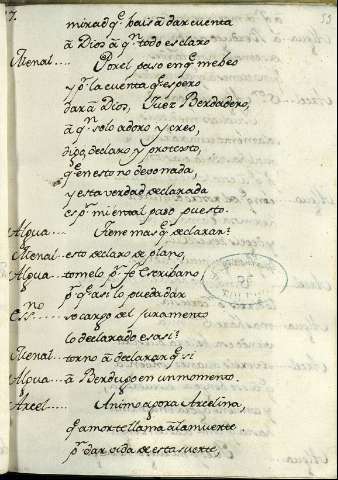 7. 53
mirad q.e bais a dar cuenta
a Dios a q.n todo es claro
Arenal.... Por el paso en q.e me beo
y p.r la cuenta q.e espero
dar a Dios, Juez Berdadero,
a q.n solo adoro y creo,
digo, declaro y protesto,
q.e en esto no devo nada,
y esta verdad declarada
es p.r mi en tal paso puesto.
Algua.... tiene mas q.e declarar?
Arenal.... esto declaro de plano,
Algua.... tomelo p.r fe Escribano,
p.r q.e asi lo pueda dar
Ess.no.... so cargo del juramento
lo declarado es asi?
Arenal.... torno a declarar q.e si
Algua.... a Berdugo en un momento.
Arcel..... Animo agora Arcelina,
q.e amor te llama a la muerte.
p.r dar vida de esta suerte,